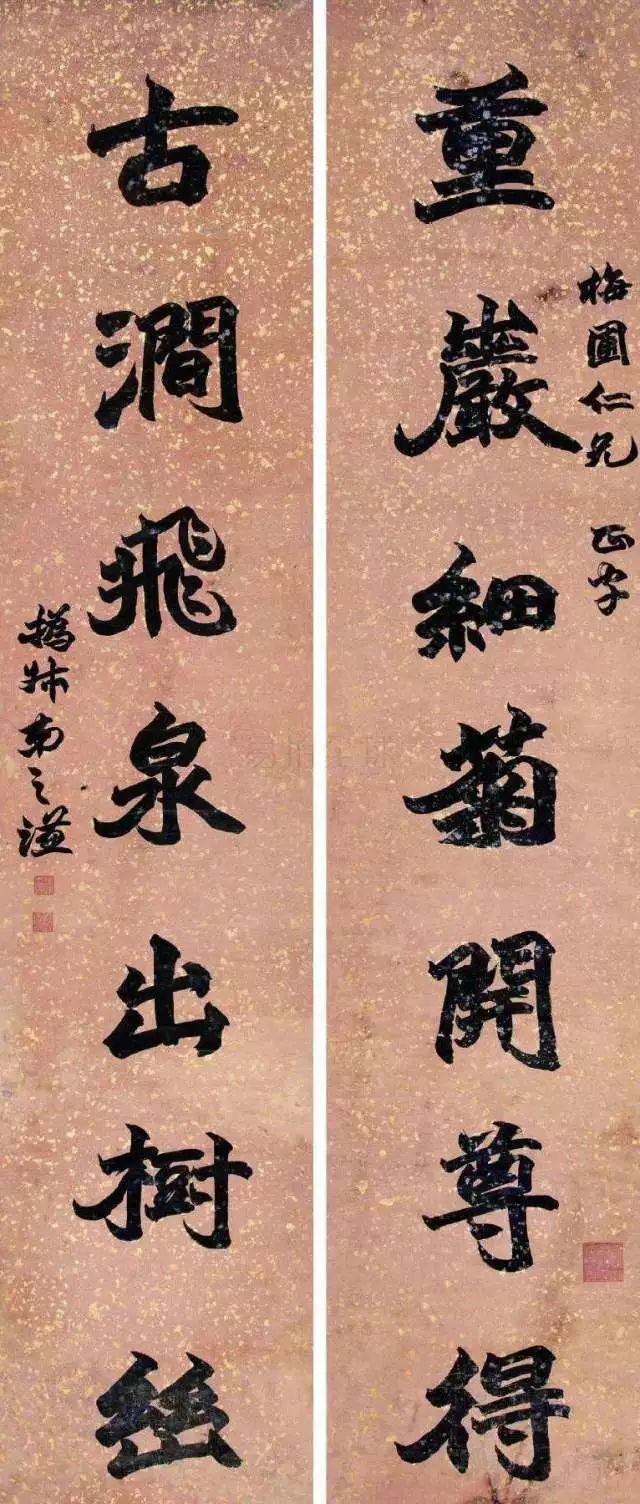 重巖細菊開尊得
梅圃仁兄 正字
古澗飛泉出樹幽
撝叔弟之謙